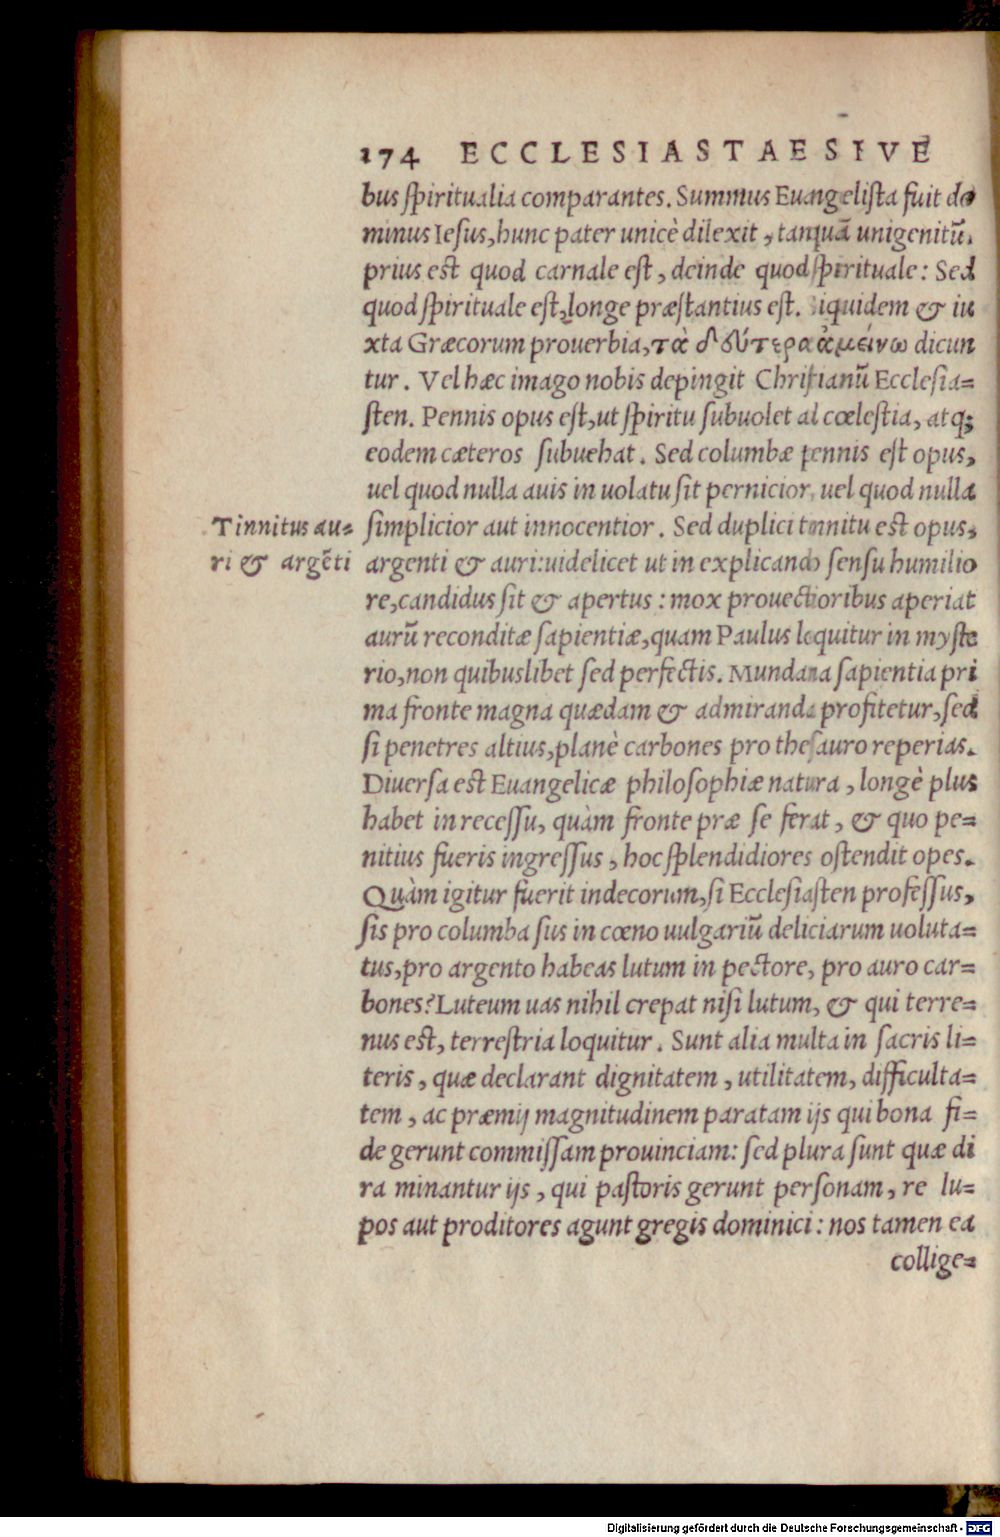 174 ECCLESIASTAE SIVE
bus ſpiritualia comparantes. Summus Euangeliſta fuit do
minus Ieſus, hunc pater unicè dilexit, tanquā unigenitū.
prius est quod carnale eſt, deinde quod ſpirituale: Sed
quod ſpirituale eſt, longe præſtantius eſt. Siquidem & iu
xta Græcorum prouerbia, τὰ δδύτερα ἀμείνω dicun
tur. Vel hæc imago nobis depingit Chriſtianū Eccleſia=
ſten. Pennis opus eſt, ut ſpiritu ſubuolet ad cœleſtia, atq;
eodem cæteros ſubuehat. Sed columbæ pennis eſt opus,
uel quod nulla auis in uolatu ſit pernicior, uel quod nulla
Tinnitus au=
ri & argẽti
ſimplicior aut innocentior. Sed duplici tinnitu est opus,
argenti & auri: uidelicet ut in explicando ſenſu humilio
re, candidus ſit & apertus: mox prouectioribus aperiat
aurū reconditæ ſapientiæ, quam Paulus loquitur in myſte
rio, non quibuslibet ſed perfectis. Mundana ſapientia pri
ma fronte magna quædam & admiranda profitetur, ſed
ſi penetres altius, planè carbones pro theſauro reperias.
Diuerſa est Euangelicæ philoſophiæ natura, longè plus
habet in receſſu, quàm fronte præ ſe ferat, & quo pe=
nitius fueris ingreſſus, hoc ſplendidiores oſtendit opes.
Quàm igitur fuerit indecorum, ſi Eccleſiaſten profeſſus,
ſis pro columba ſus in cœno uulgariū deliciarum uoluta=
tus, pro argento habeas lutum in pectore, pro auro car=
bones? Luteum uas nihil crepat niſi lutum, & qui terre=
nus est, terreſtria loquitur. Sunt alia multa in ſacris li=
teris, quæ declarant dignitatem, utilitatem, difficulta=
tem, ac præmij magnitudinem paratam ijs qui bona fi=
de gerunt commiſſam prouinciam: ſed plura ſunt quæ di
ra minantur ijs, qui paſtoris gerunt perſonam, re lu=
pos aut proditores agunt gregis dominici: nos tamen ea
collige=
Digitalisierung gefördert durch die Deutsche Forschungsgemeinschaft - DFG